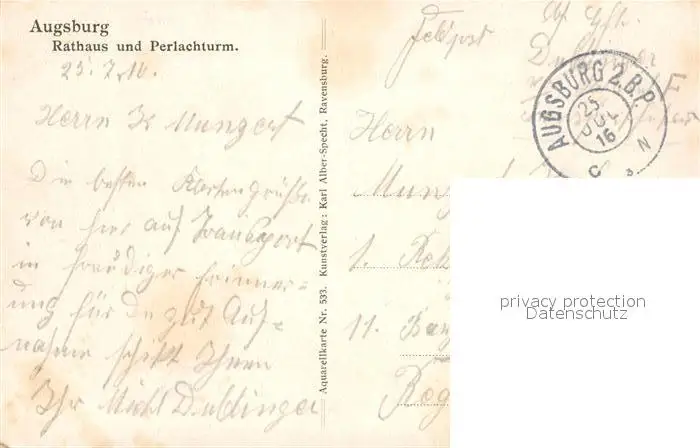 Augsburg
Rathaus und Perlachturm.
25.7.16.
Herrn K Mungert
Die besten Kartengrüße
von hier auf Transport
in freudiger Erinner-
ung für die gut Auf-
nahme schikt Ihnen
Ihr Michl Dublinger
Aquarellkarte Nr. 533. Kunstverlag: Karl Alber-Specht, Ravensburg.
Feldpost
Abs. Gft.
Dublinger
AUGSBURG 2.B.P.
25
JUL
16
C
N
Herrn
Mung
1.
11.
Reg
privacy protection
Datenschutz